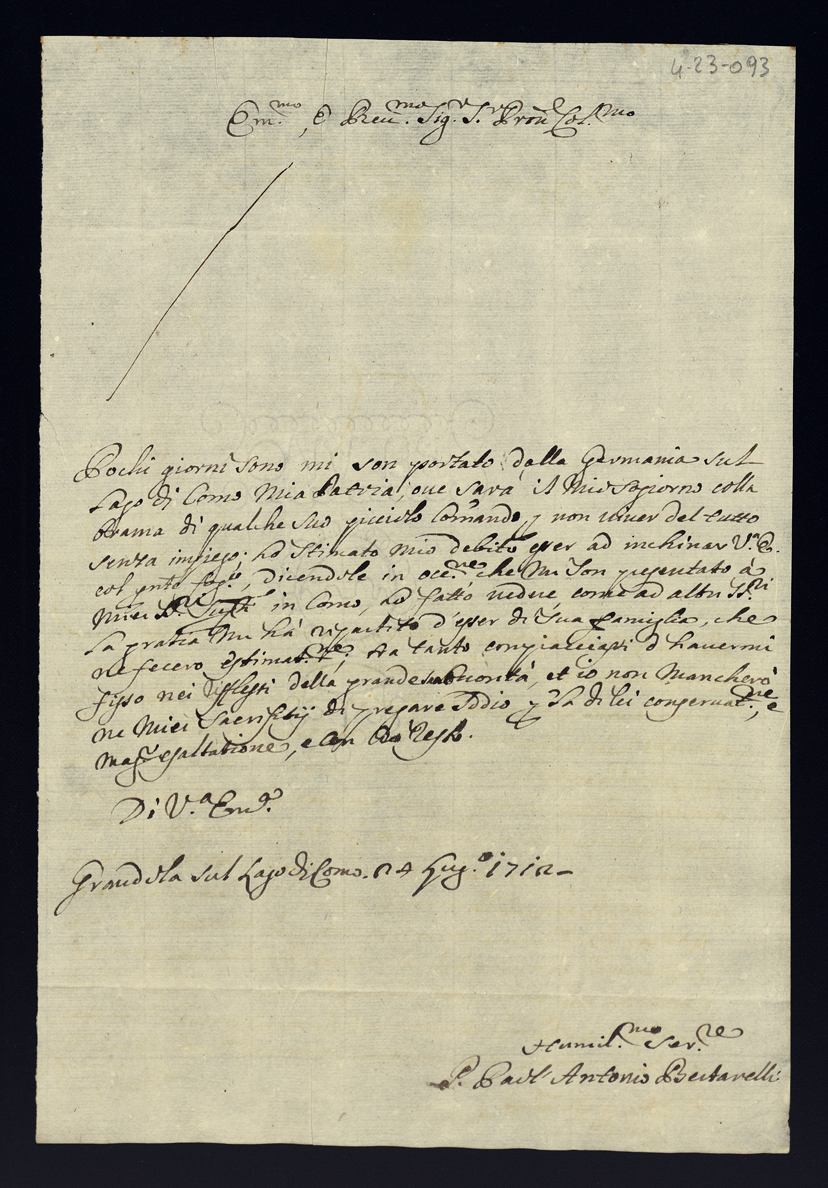 4-23-093
Em.mo, e Reu.mo Sig.r S.r Pron Col.mo
Pochi giorni sono mi son portato dalla Germania sul
Lago di Como Mia Patria, oue sarà il Mio sogiorno colla
brama di qualche suo picciolo Comando, p non uiuer del tutto
senza impiego; ho stimato mio debito esser ad inchinar V.a E.
col pnte fogio, dicendole in occ.ne che Mi son presentato à
Miei SS.ri in Como, ho fatto uedere come ad altri SS.ri
La pratica Mi hà d'esser di Sua famiglia, che
ne fecero tanto compiacciari d'hauermi
fisso nei riflessi della grande sua Buontà, et io non Mancherò
ne Miei Sacrifitij di pregare Iddio p la di lei conseruat.ne, e
mag.r esaltatione, e con
Di V.a Em.a
Grandola sul Lago di Como. 24 Lug.o 1712
Humil.mo Ser.re
P. Antonio Bertarelli